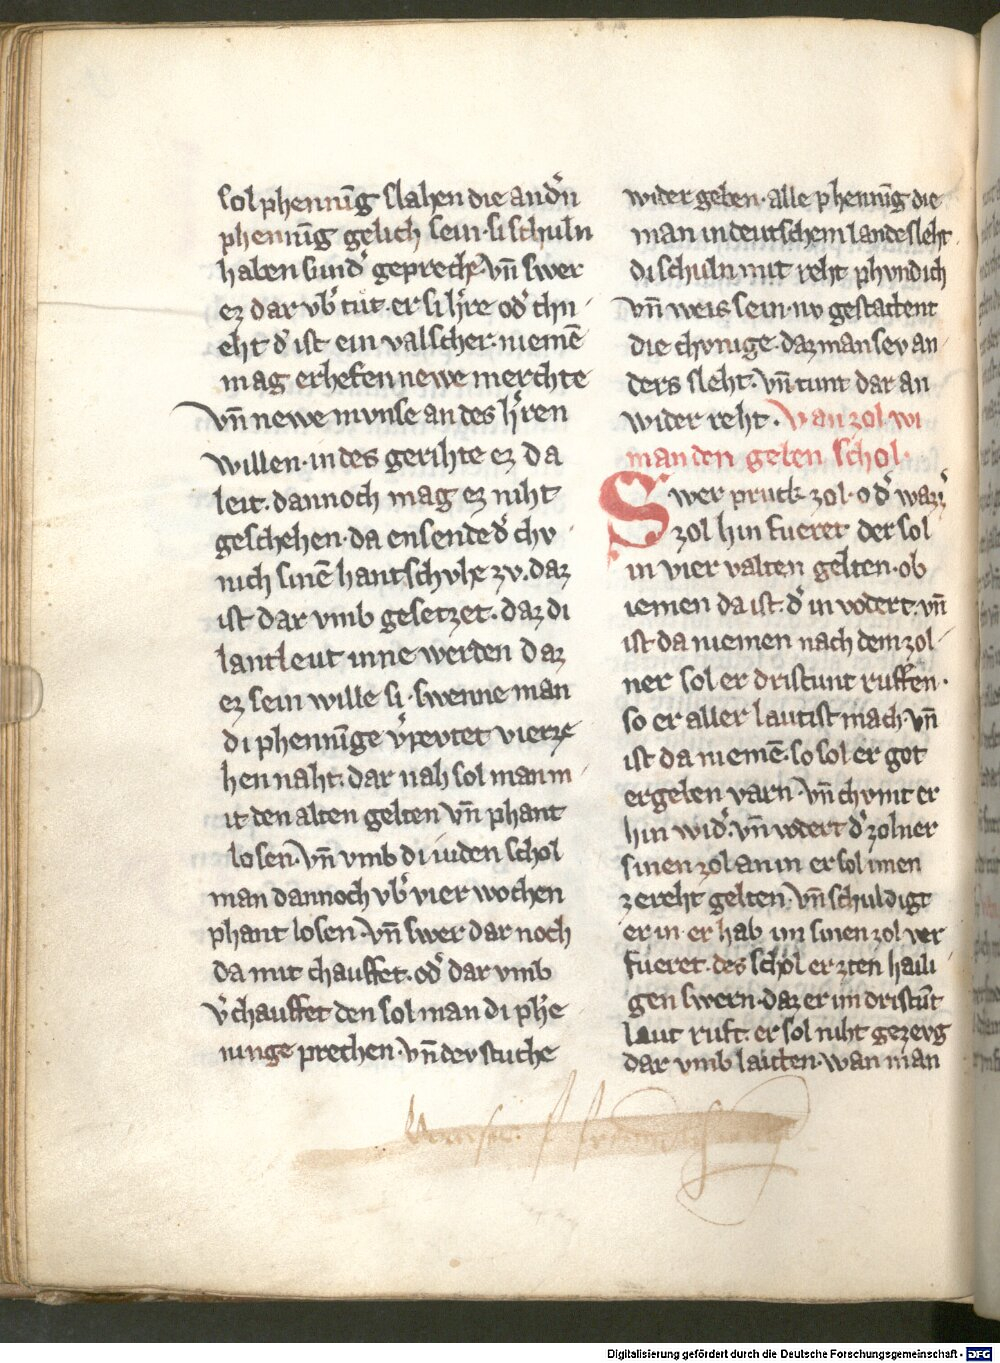 sol phenniṅg slahen die and̾n
phenniṅg gelich sein · si schuln
haben sund̾ geprech̾e · vn̄ swer
ez dar vb̾ tůt · er si h̾re od̾ chn
eht d̾ ist ein valscher · niemē
mag erheten newe merchte
vn̄ newe mvnse an des h̾ren
willen · in des gerihte ez da
leit · dannoch mag ez niht
geschehen · da ensende d̾ chv
nich sinē hantschvhe zv · daz
ist dar vmb gesetzet · daz di
lantleut inne werden daz
ez sein wille si · swenne man
di phenniṅge v̾pevtet vierze
hen naht · dar nah sol man m
it den alten gelten vn̄ phant
losen · vn̄ vmb di iuden schol
man dannoch vb̾ vier wochen
phant losen · vn̄ swer dar noch
da mit chauffet · od̾ dar vmb
v̾chauffet den sol man di phe̾
ninge prechen · vn̄ dev stuche
wider geben · alle phenniṅg die
man in deutschem lande sleht
di schuln mit reht phvndich
vn̄ weis sein · nv gestatent
die chvnige · daz man sev an
ders sleht · vn̄ tunt dar an
wider reht · Van zol wi
man den geben schol ·
Swer pruck zol · od̾ wazz̾
zol hin fueret der sol
in vier valten gelten · ob
iemen da ist · d̾ in vodert · vn̄
ist da niemen nach dem zol
ner sol er dristunt ruffen ·
so er aller lautist mach · vn̄
ist da niemē · so sol er got
ergeben varn · vn̄ chvmt er
hin wid̾ · vn̄ vodert d̾ zolner
sinen zol an in er sol imen
ze reht gelten · vn̄ schuldigt
er in · er hab im sinen zol ver
fueret · des schol er zten haili
gen swern · daz er im dristūt
laut ruft · er sol niht gezevg
dar vmb laitten · wan man
Digitalisierung gefördert durch die Deutsche Forschungsgemeinschaft - DFG